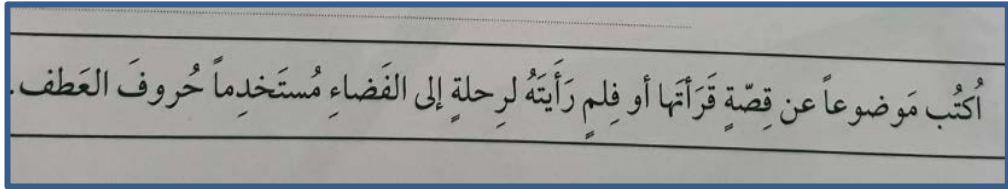 اُكتُب مَوضوعاً عن قِصّةٍ قَرَأتَها أو فِلمٍ رَأَيتَهُ لرِحلةٍ إلى الفَضاءِ مُستَخدِماً حُروفَ العَطف.